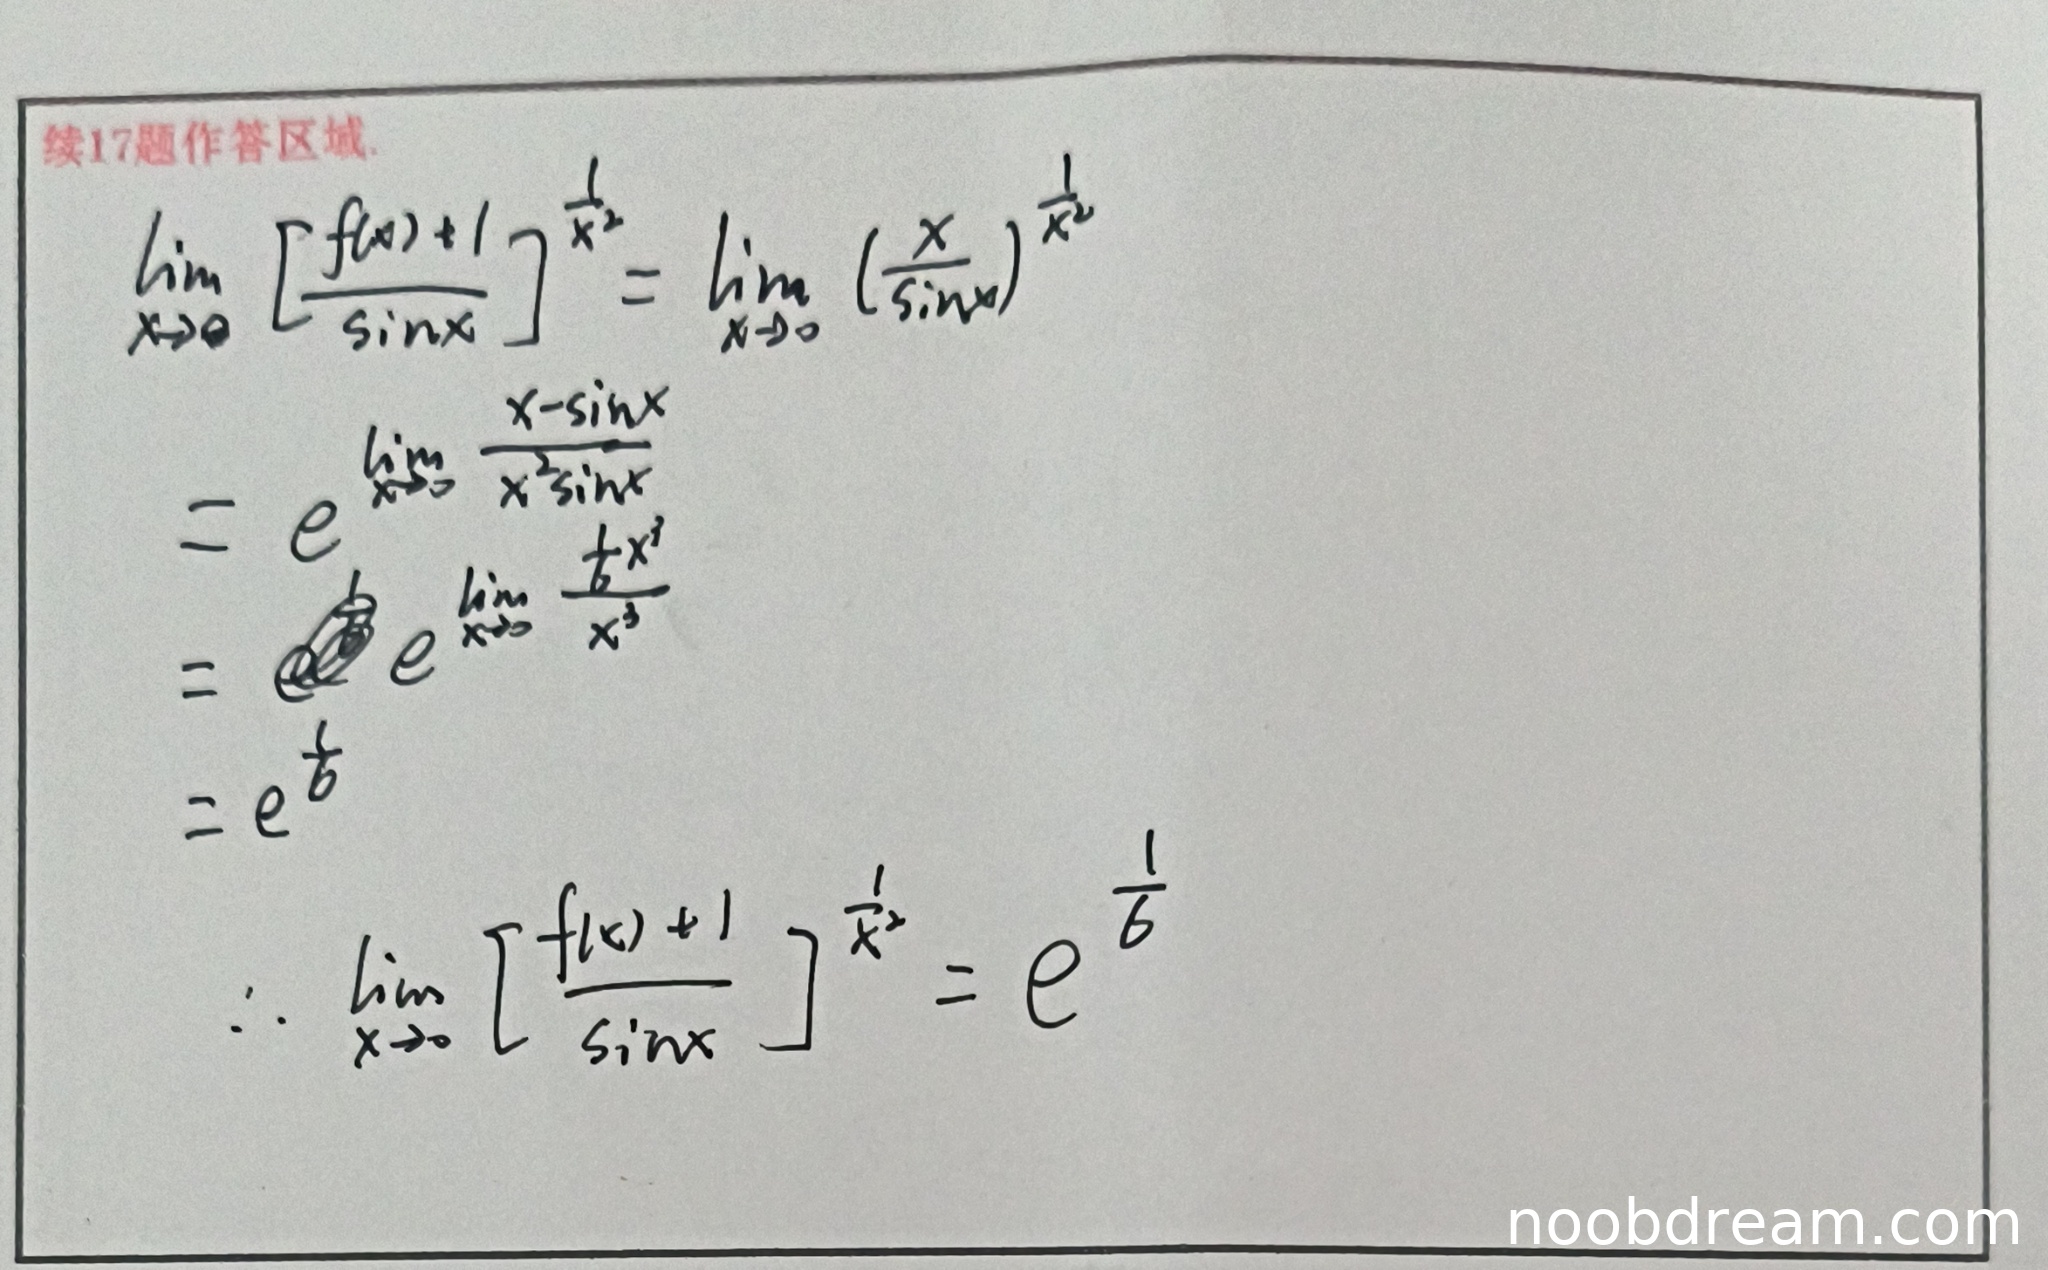 续17题作答区域.
lim x→0 [ (f(x)+1) / sinx ]^(1/x²) = lim x→0 ( x / sinx )^(1/x²)
= e^( lim x→0 (x-sinx) / (x²sinx) )
= e^( lim x→0 (1/6 x³) / x³ )
= e^(1/6)
∴ lim x→0 [ (f(x)+1) / sinx ]^(1/x²) = e^(1/6)
noobdream.com